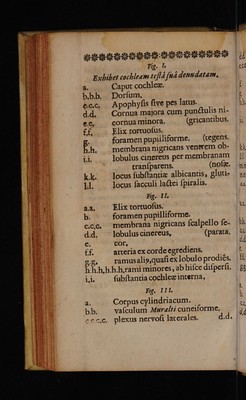 Fig. I.
Exhibet cochleam testâ suâ denudatam.
a. Caput cochleæ.
b.b.b. Dorsum.
c.c.c. Apophysis sive pes latus.
d.d. Cornua majora cum punctulis ni-
e.e. cornua minora. (gricantibus.
f.f. Elix tortuosus.
g. foramen pupilliforme. (tegens.
h.h. membrana nigricans ventrem ob-
i.i. lobulus cinereus per membranam
transparens. (nosæ.
k.k. locus substantiæ albicantis, gluti-
l.l. locus sacculi lactei spiralis.
Fig. II.
a.a. Elix tortuosus.
b. foramen pupilliforme.
c.c.c. membrana nigricans scalpello se-
d.d. lobulus cinereus, (parata.
e. cor,
f.f. arteria ex corde egrediens.
g.g. ramus alis, quasi ex lobulo prodiês.
h.h.h.h.h.h. rami minores, ab hisce dispersi.
i.i. substantia cochleæ interna,
Fig. III.
a. Corpus cylindriacum.
b.b. vasculum Muralti cuneiforme.
c.c.c.c. plexus nervosi laterales. d.d.